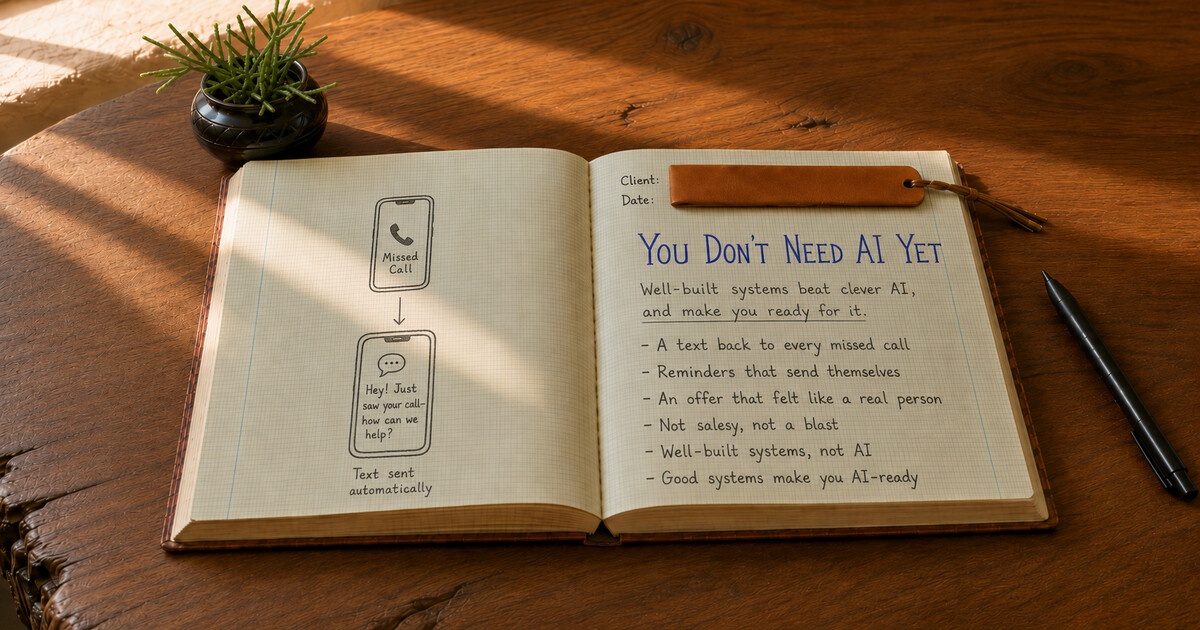 Missed
Call
Hey! Just
saw your call–
how can we
help?
Text sent
automatically
Client:
Date:
You Don't Need AI Yet
Well-built systems beat clever AI,
and make you ready for it.
- A text back to every missed call
- Reminders that send themselves
- An offer that felt like a real person
- Not salesy, not a blast
- Well-built systems, not AI
- Good systems make you AI-ready